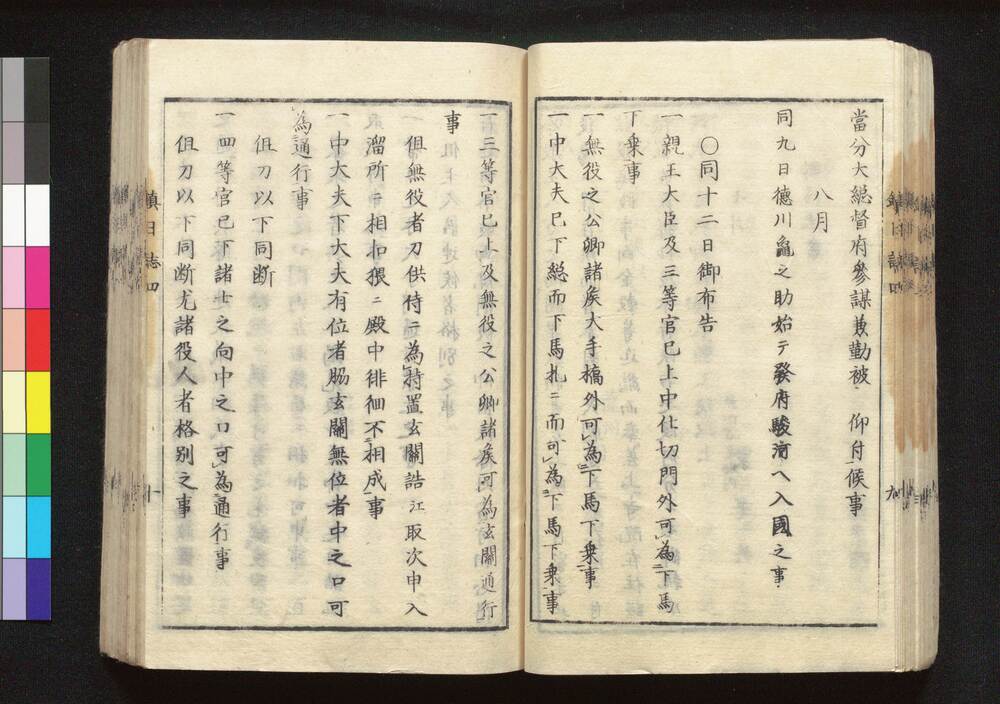 當分大総督府參謀兼勤被　仰付候事
八月
同九日德川龜之助始テ發府駿河ヘ入國之事
〇同十二日御布告
一親王大臣及三等官已上中仕切門外可為下馬
下乗事
一無役之公卿諸矦大手橋外可為下馬下乗事
一中大夫已下総而下馬札ニ而可為下馬下乗事
鎮日誌四
九
一三等官已上及無役之公卿諸矦可為玄關通行
事
但無役者刀供侍ニ為持置玄關詰江取次申入
溜所ニ相扣猥ニ殿中徘徊不相成事
一中大夫下大夫有位者脇玄關無位者中之口可
為通行事
但刀以下同断
一四等官已下諸士之向中之口可為通行事
但刀以下同断尤諸役人者格別之事
鎮日誌四
十